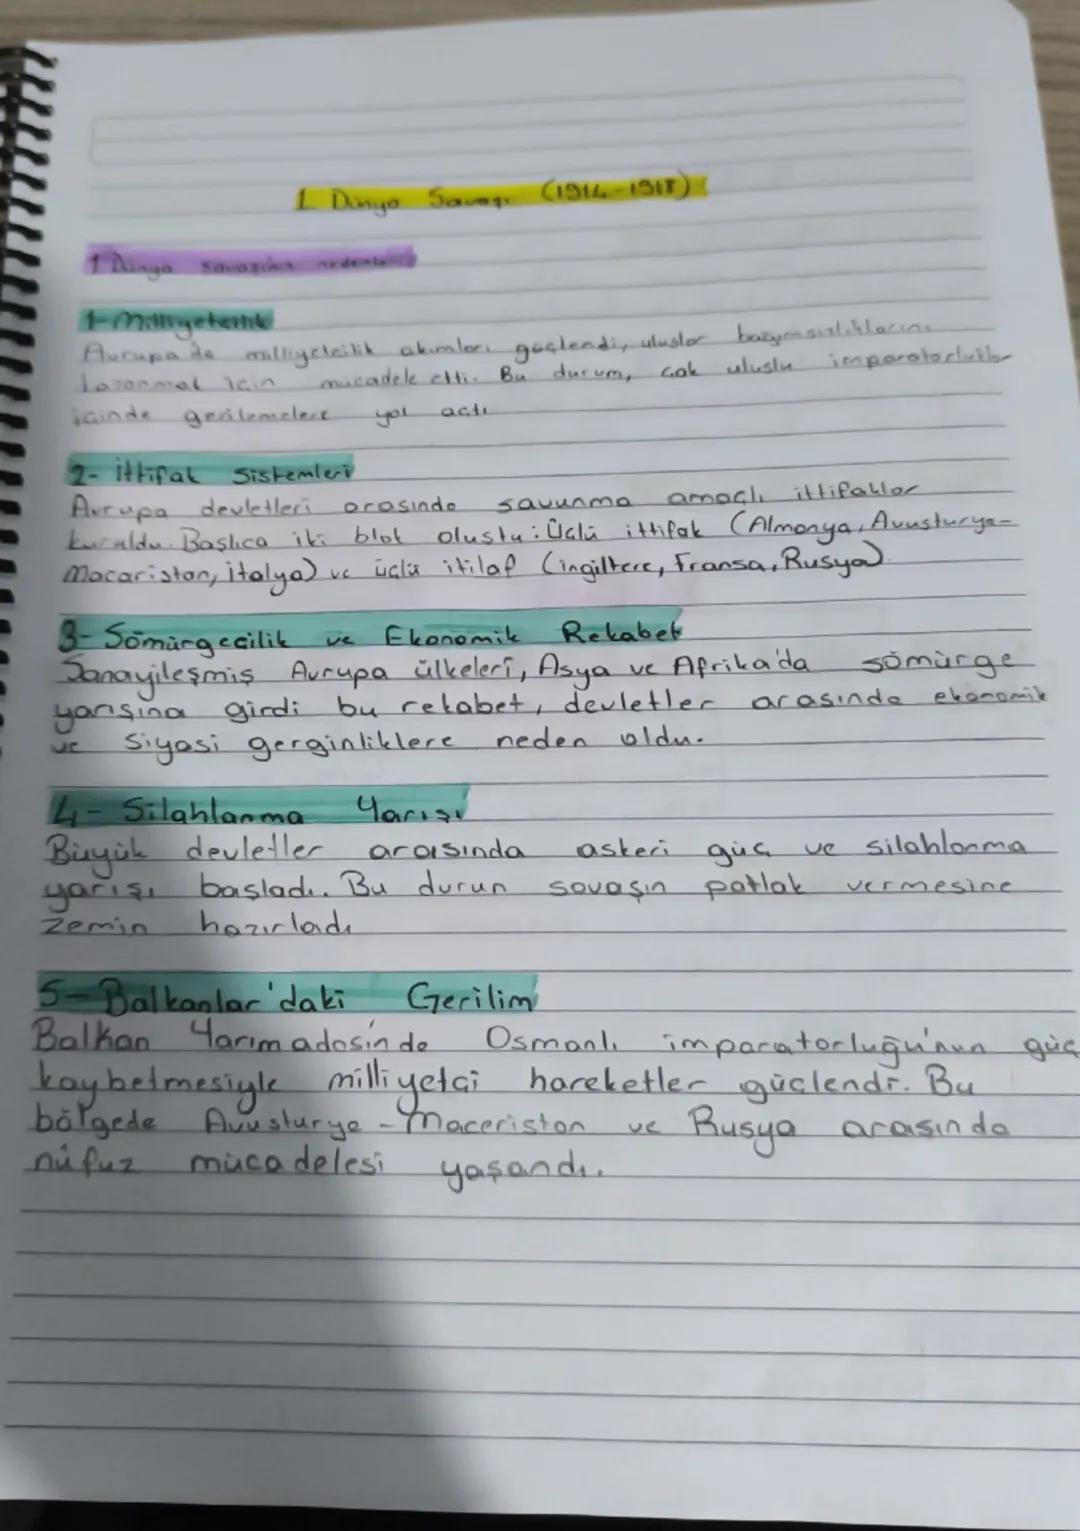 1. Dünya Savaşı (1914-1918)
1 Dünya savaşının nedenleri
1- Milliyetçilik
Avrupa'da milliyetçilik akımları güçlendi, uluslar bağımsızlıklarını
kazanmak için mücadele etti. Bu durum, çok uluslu imparatorluklar
içinde gerilemelere yol açtı
2- İttifak Sistemleri
Avrupa devletleri arasında savunma amaçlı ittifaklar
kuruldu. Başlıca iki blok oluştu: Üçlü ittifak (Almanya, Avusturya-
Macaristan, italya) ve üçlü itilaf (ingiltere, Fransa, Rusya).
3- Sömürgecilik ve Ekonomik Rekabet
Sanayileşmiş Avrupa ülkeleri, Asya ve Afrika'da sömürge
yarışına girdi bu rekabet, devletler arasında ekonomik
ve siyasi gerginliklere neden oldu.
4- Silahlanma Yarışı
Büyük devletler arasında askeri güç ve silahlanma
yarışı başladı. Bu durun savaşın patlak vermesine
zemin hazırladı
5- Balkanlar'daki Gerilim
Balkan Yarımadasinde Osmanlı imparatorluğu'nun güç
kaybetmesiyle milliyetçi hareketler güçlendi. Bu
bölgede Avusturya - Maceristan ve Rusya arasında
nüfuz mücadelesi yaşandı.